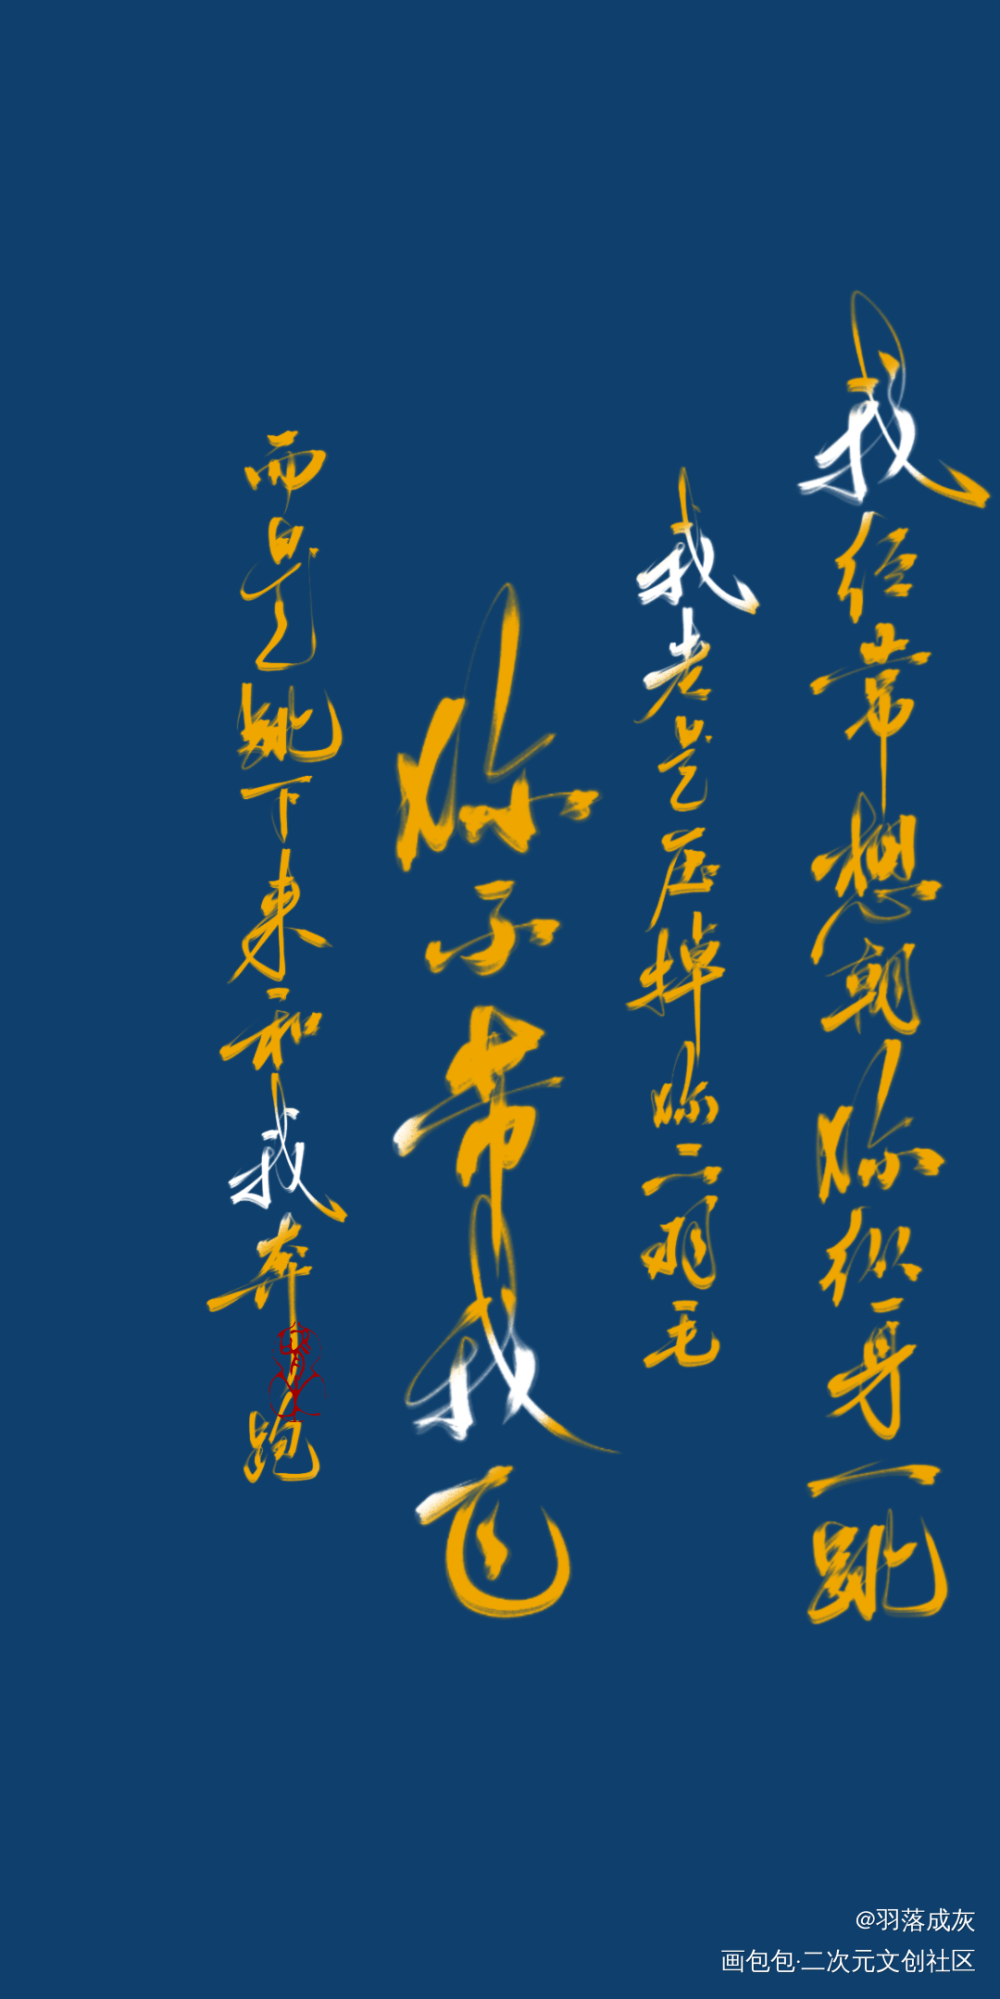 我经常想朝你纵身一跳
我老是压掉你二羽毛
你不带我飞
而是跳下来和我奔跑
@羽落成灰
画包包·二次元文创社区